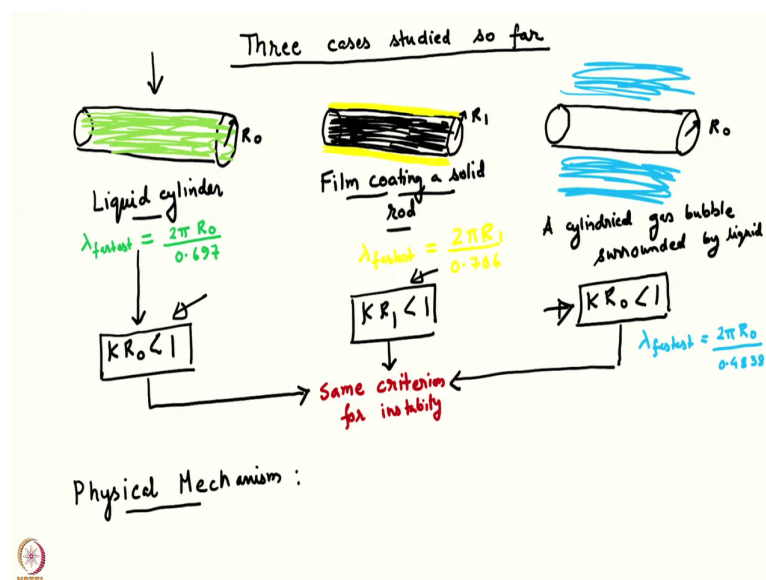 Three cases studied so far
R₀
R₁
R₀
Liquid cylinder
λfastest = 2πR₀/0.697
KR₀ < 1
Film coating a solid
rod
λfastest = 2πR₁/0.706
KR₁ < 1
A cylindrical gas bubble
surrounded by liquid
KR₀ < 1
λfastest = 2πR₀/0.4838
Same criterion
for instability
Physical Mechanism :